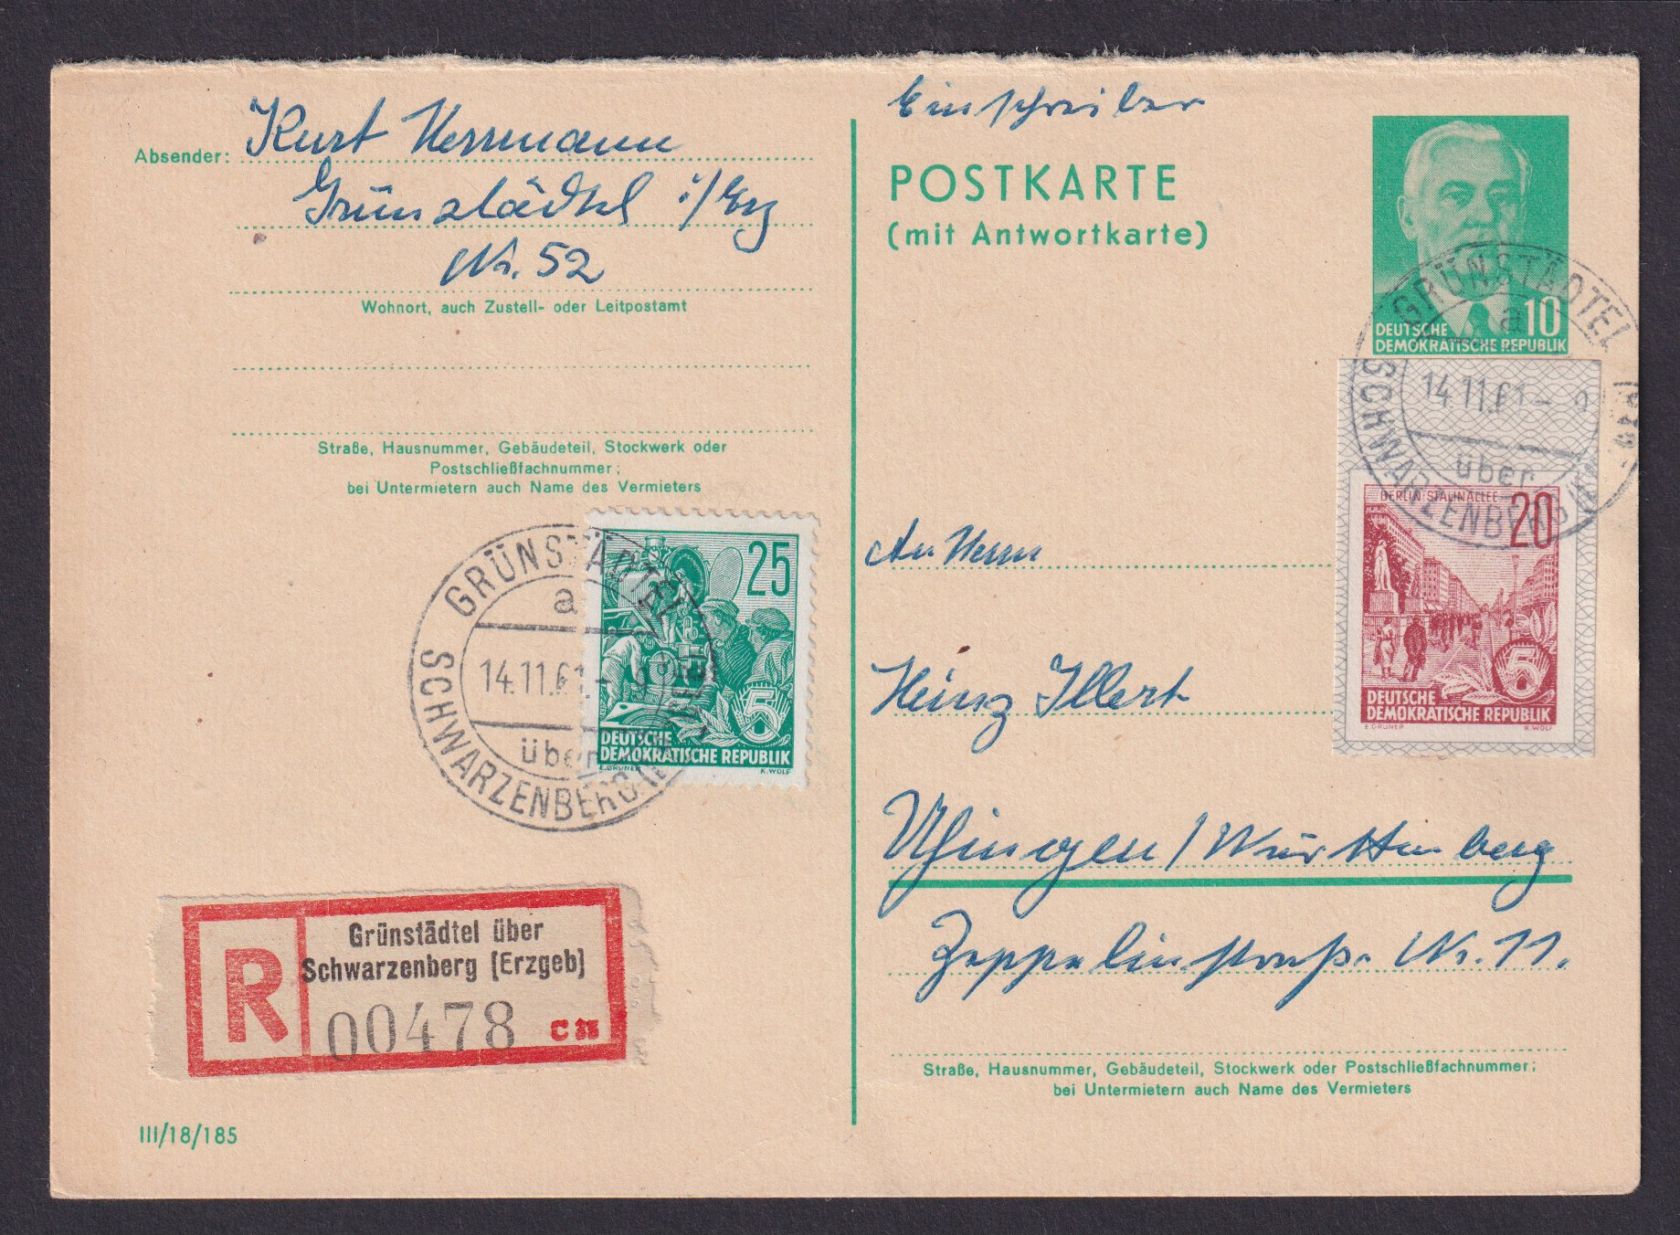 Absender: Kurt Herrmann
Grünstädtel i/Erz
Nr. 52
Wohnort, auch Zustell- oder Leitpostamt
Straße, Hausnummer, Gebäudeteil, Stockwerk oder
Postschließfachnummer;
bei Untermietern auch Name des Vermieters
GRÜNSTÄDTEL
a
14.11.61-
über
SCHWARZENBERG
25
5
DEUTSCHE
DEMOKRATISCHE REPUBLIK
E.GRUNER K.WOLF
R
Grünstädtel über
Schwarzenberg (Erzgeb)
00478
III/18/185
Einschreiben
POSTKARTE
(mit Antwortkarte)
10
DEUTSCHE
DEMOKRATISCHE REPUBLIK
GRÜNSTÄDTEL
a
14.11.61-
über
SCHWARZENBERG
BERLIN STALINALLEE
20
5
DEUTSCHE
DEMOKRATISCHE REPUBLIK
E.GRUNER K.WOLF
An Herrn
Heinz Illert
Uhingen/Württemberg
Zeppelinstraße Nr. 11.
Straße, Hausnummer, Gebäudeteil, Stockwerk oder Postschließfachnummer;
bei Untermietern auch Name des Vermieters